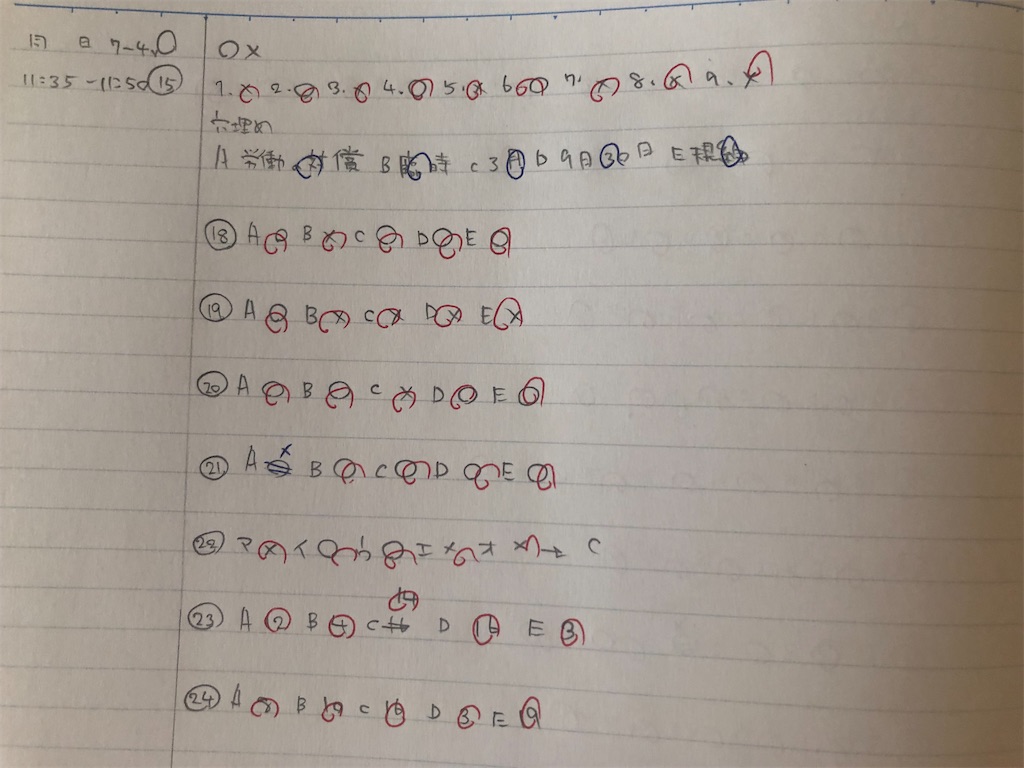 日 7-4
○×
11:35-11:50 15
1. × 2. ○ 3. ○ 4. ○ 5. × 6 ○ 7. 8. × 9. ×
穴埋め
A 労働 対償 B 臨時 C 3 月 D 9月30日 E
⑱ A ○ B × C ○ D ○ E ○
⑲ A ○ B × C × D × E ×
⑳ A ○ B ○ C × D ○ E ○
㉑ A × B ○ C ○ D ○ E ○
㉒ ア × イ ○ ウ ○ エ × オ × → C
㉓ A ② B 4 C 14 D E 3
㉔ A B C D E